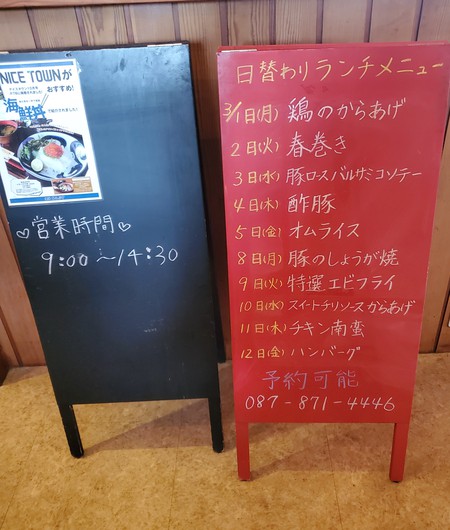 NICE TOWNが
おすすめ!
海鮮丼
♡営業時間♡
9:00～14:30
日替わりランチメニュー
3/1日(月) 鶏のからあげ
2日(火) 春巻き
3日(水) 豚ロースバルサミコソテー
4日(木) 酢豚
5日(金) オムライス
8日(月) 豚のしょうが焼
9日(火) 特選エビフライ
10日(水) スイートチリソースからあげ
11日(木) チキン南蛮
12日(金) ハンバーグ
予約可能
087-871-4446